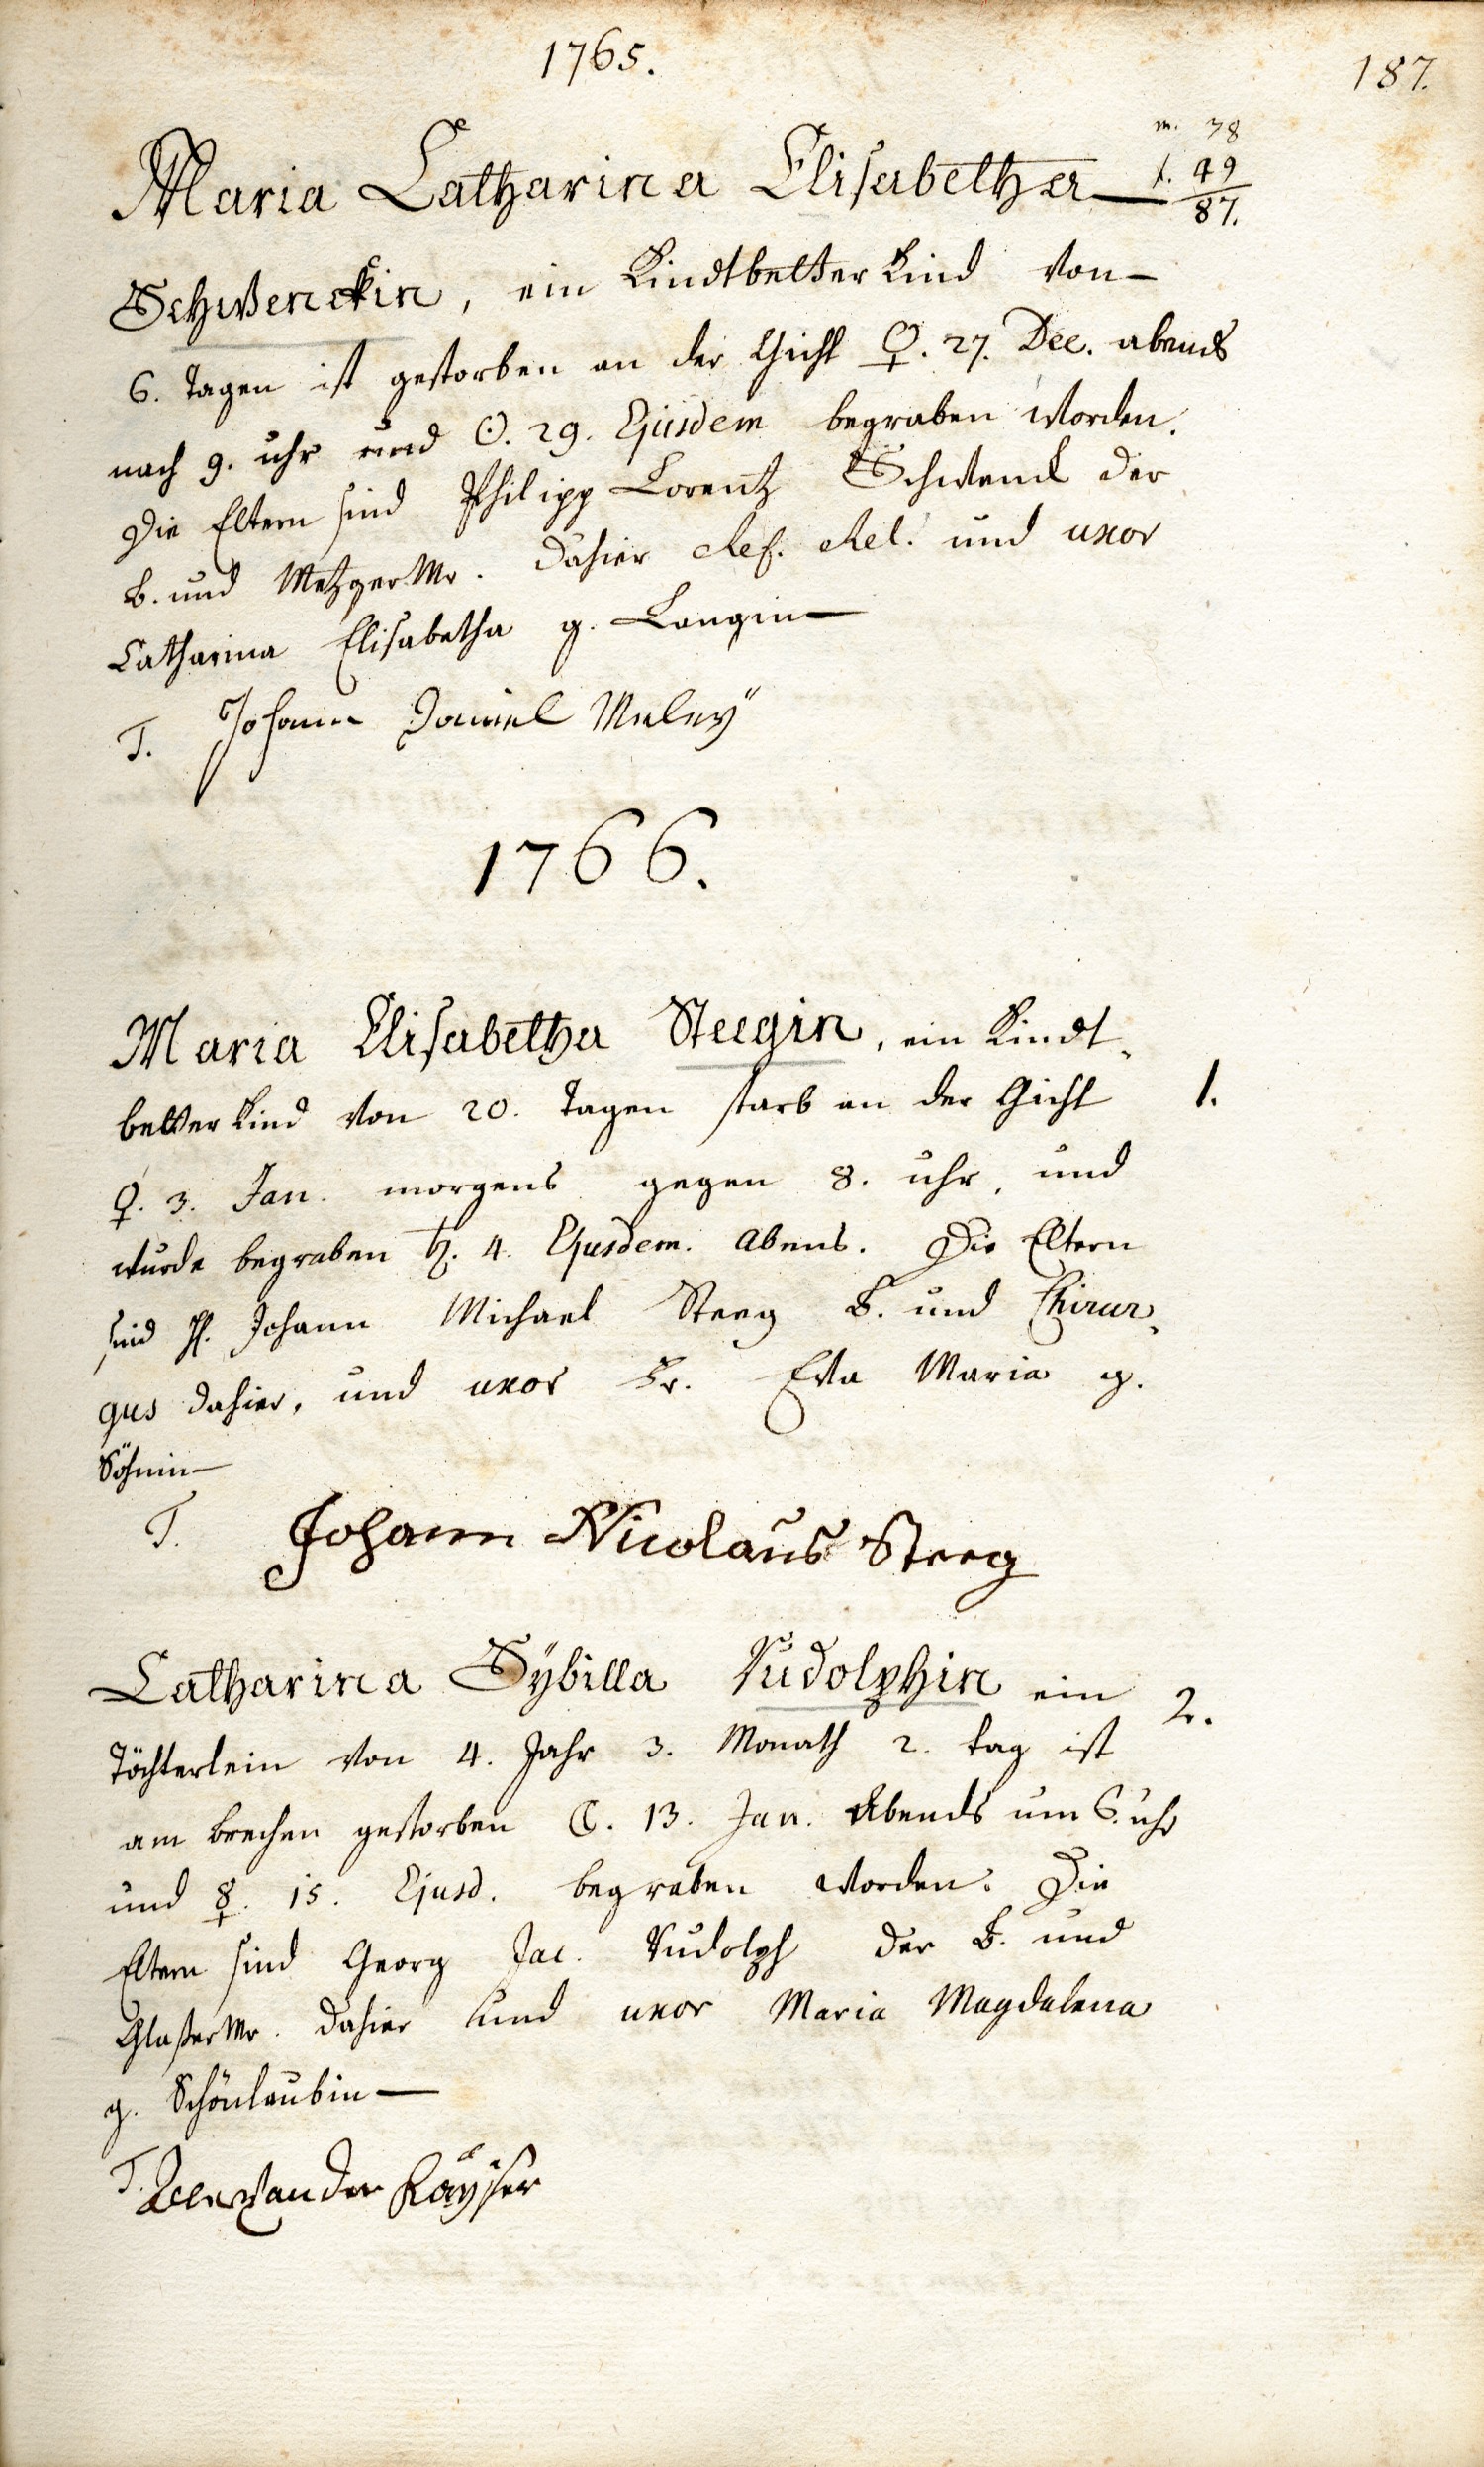 1765.
187.
m. 38
Maria Catharina Elisabetha — f. 49
87.
Schwenckin, ein Kindtbetter Kind von —
6. Tagen ist gestorben an der Gicht ♀. 27. Dec. abends
nach 9. uhr und ☉. 29. Ejusdem begraben worden.
Die Eltern sind Philipp Lorentz Schwenck der
B. und MetzgerMr. dahier Ref. Rel. und uxor
Catharina Elisabetha g. Langin —
T. Johann Daniel
1766.
Maria Elisabetha Steegin, ein Kindt-
better Kind von 20. Tagen starb an der Gicht 1.
♀. 3. Jan. morgens gegen 8. uhr, und
wurde begraben ♄. 4. Ejusdem. Abens. Die Eltern
sind H. Johann Michael Steeg B. und Chirur-
gus dahier, und uxor Fr. Eva Maria g.
Söhnin —
T. Johann Nicolaus Steeg
Catharina Sÿbilla Rudolphin ein 2.
Töchterlein von 4. Jahr 3. Monath 2. tag ist
am brechen gestorben ☾. 13. Jan. Abends um 6. uhr
und ☿. 15. Ejusd. begraben worden. Die
Eltern sind Georg Jac. Rudolph der B. und
GlaserMr. dahier und uxor Maria Magdalena
g. Schönlaubin —
T. Alexander Kaÿser